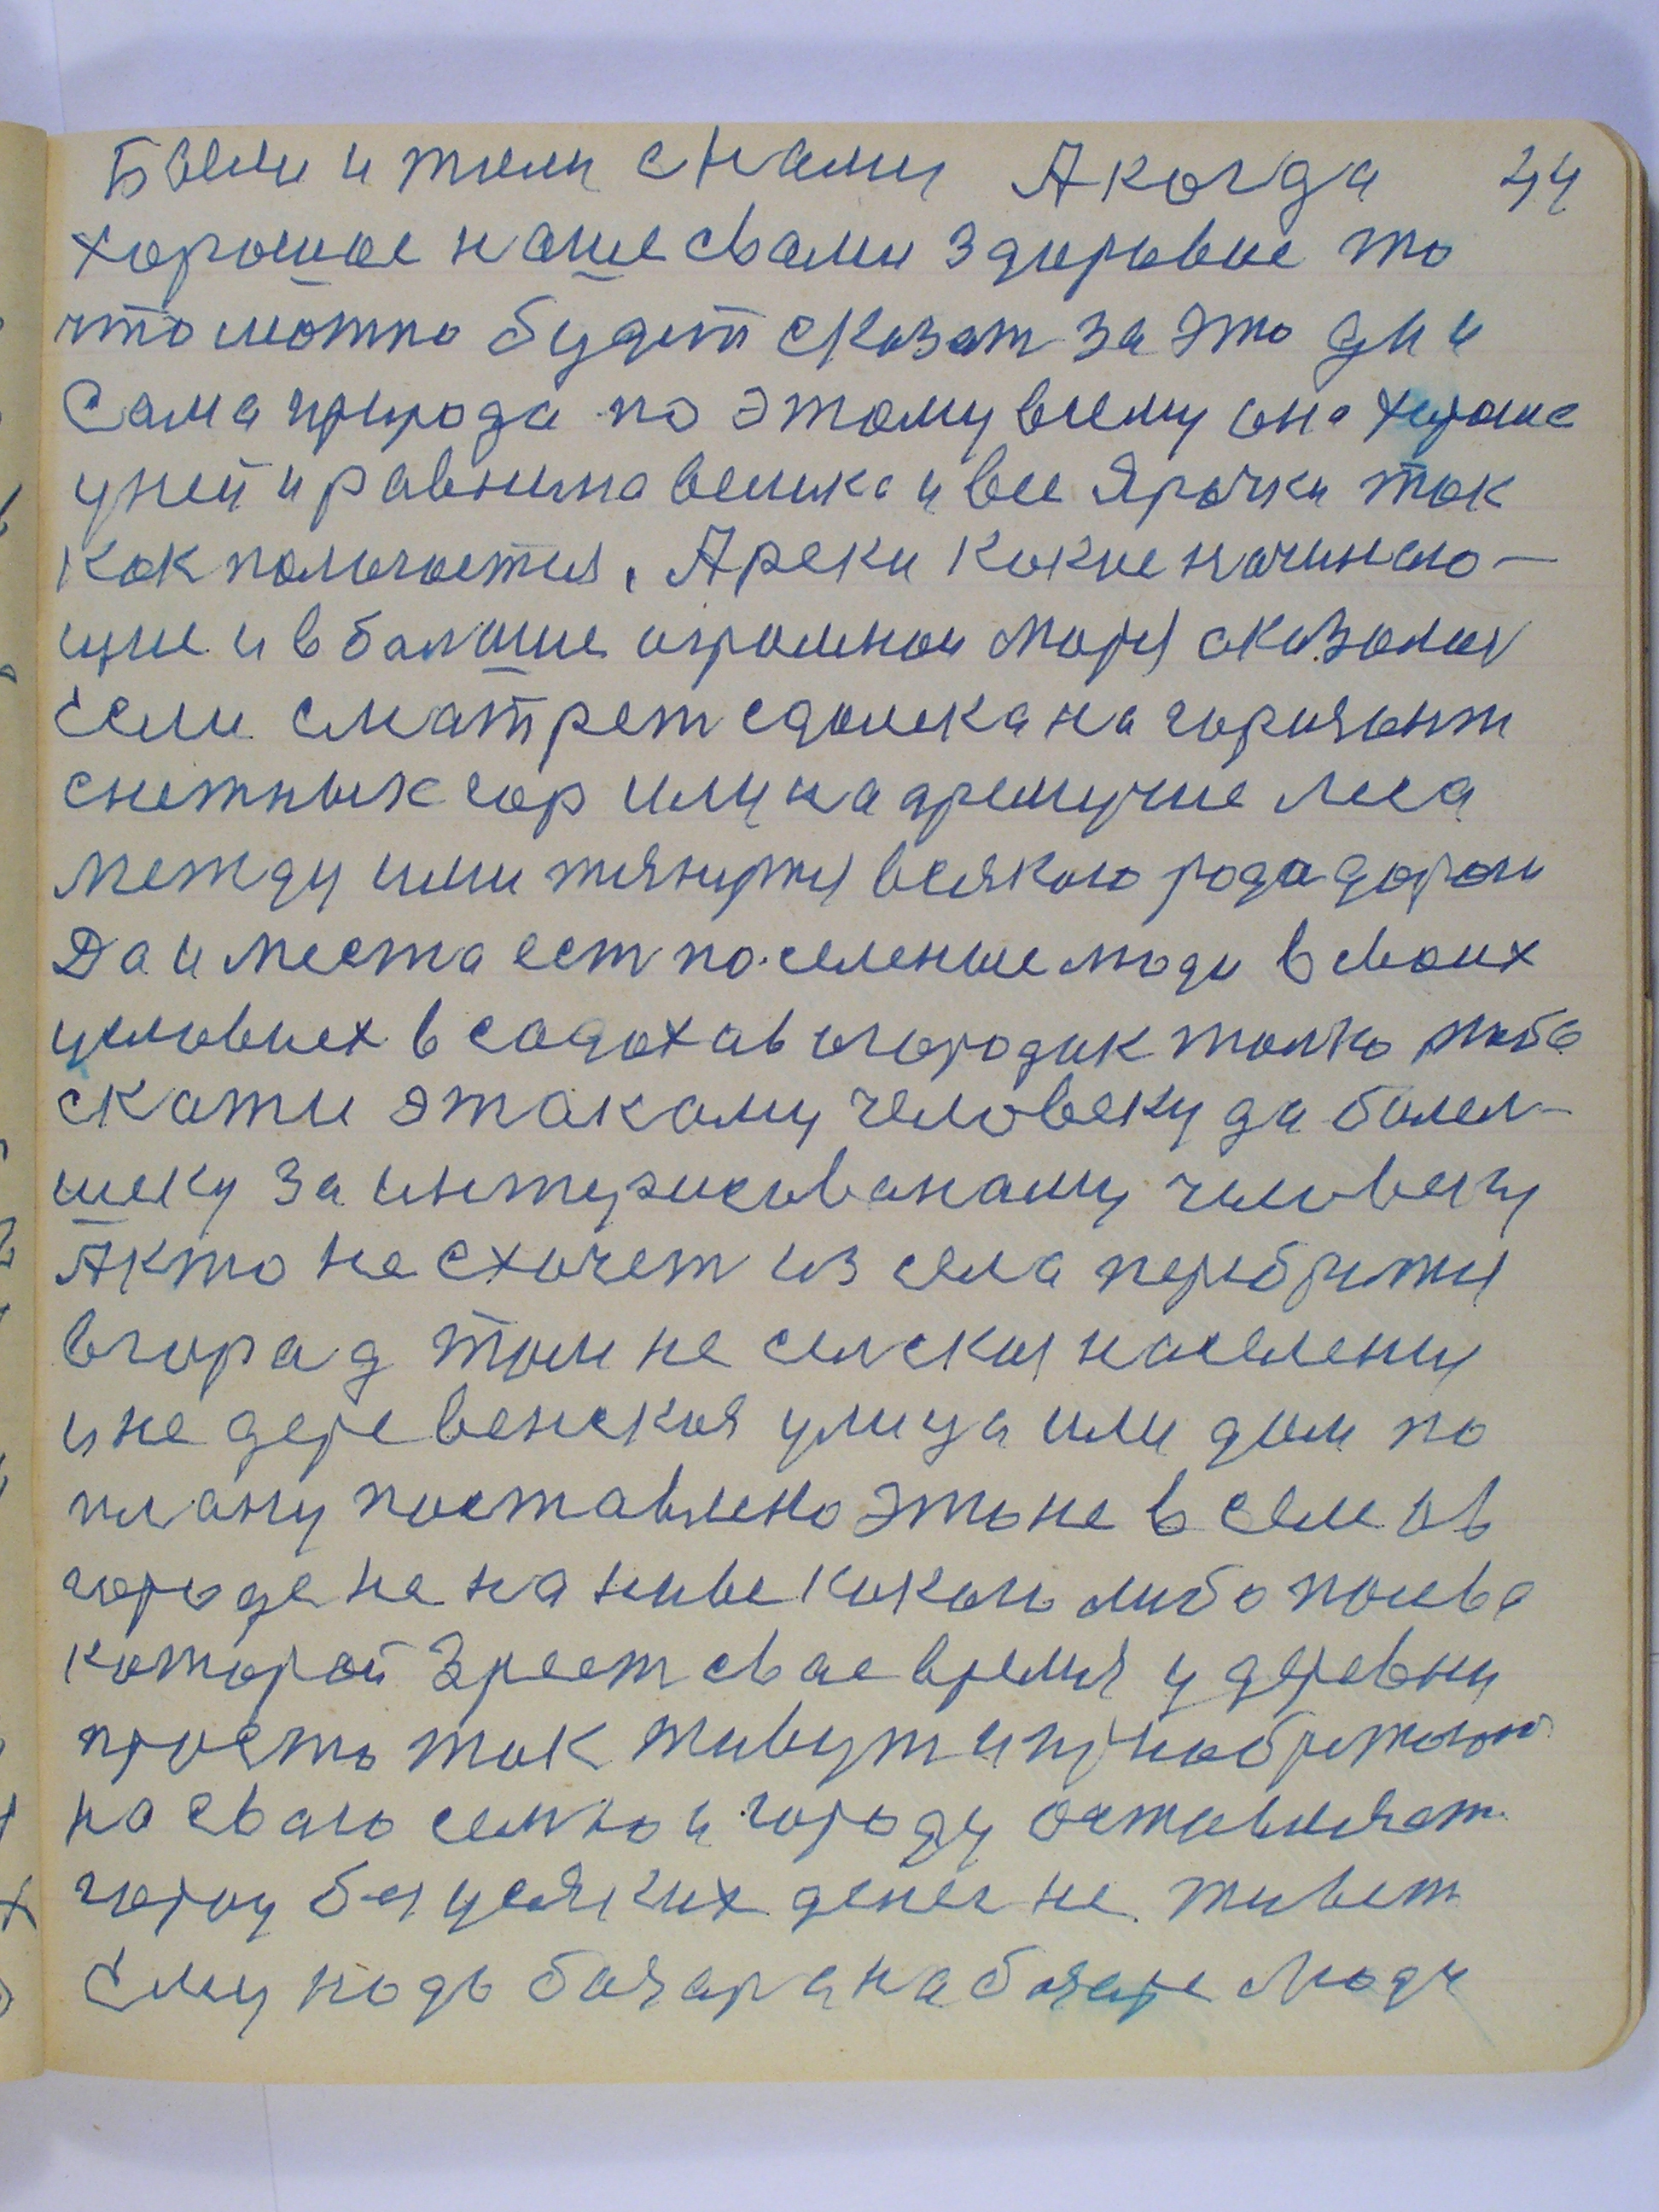 Были и жили снами А когда 44
хорошое наше свами здоровие то
что можно будет сказат за это дни
Сама природа по этому всему она хороше
уней и равнина велика и все Ярочки так
как пологается. А реки какие начинаю-
щие и в балшие огромнои моря сказалас
Если сматрет сдолека на горизонт
снежных гор или на дремучие леса
между ими тянутся всякого рода дороги
Да и места ест поселение люди в своих
условиех в садах ав огородик толко
скати этакаму человеку да болел-
шеку за интерисованаму человеку
А кто не схочет из села перебратся
вгорад там не селская населения
и не деревенская улица или дом по
плану поставлено это не в селе ав
городе не на ниве каком либо посева
которой Зреет свае время у деревни
просто так живут и приобретают
на сваю семю и городу оставляет
город без усяких денег не живет
Ему подь базар а на базаре люди